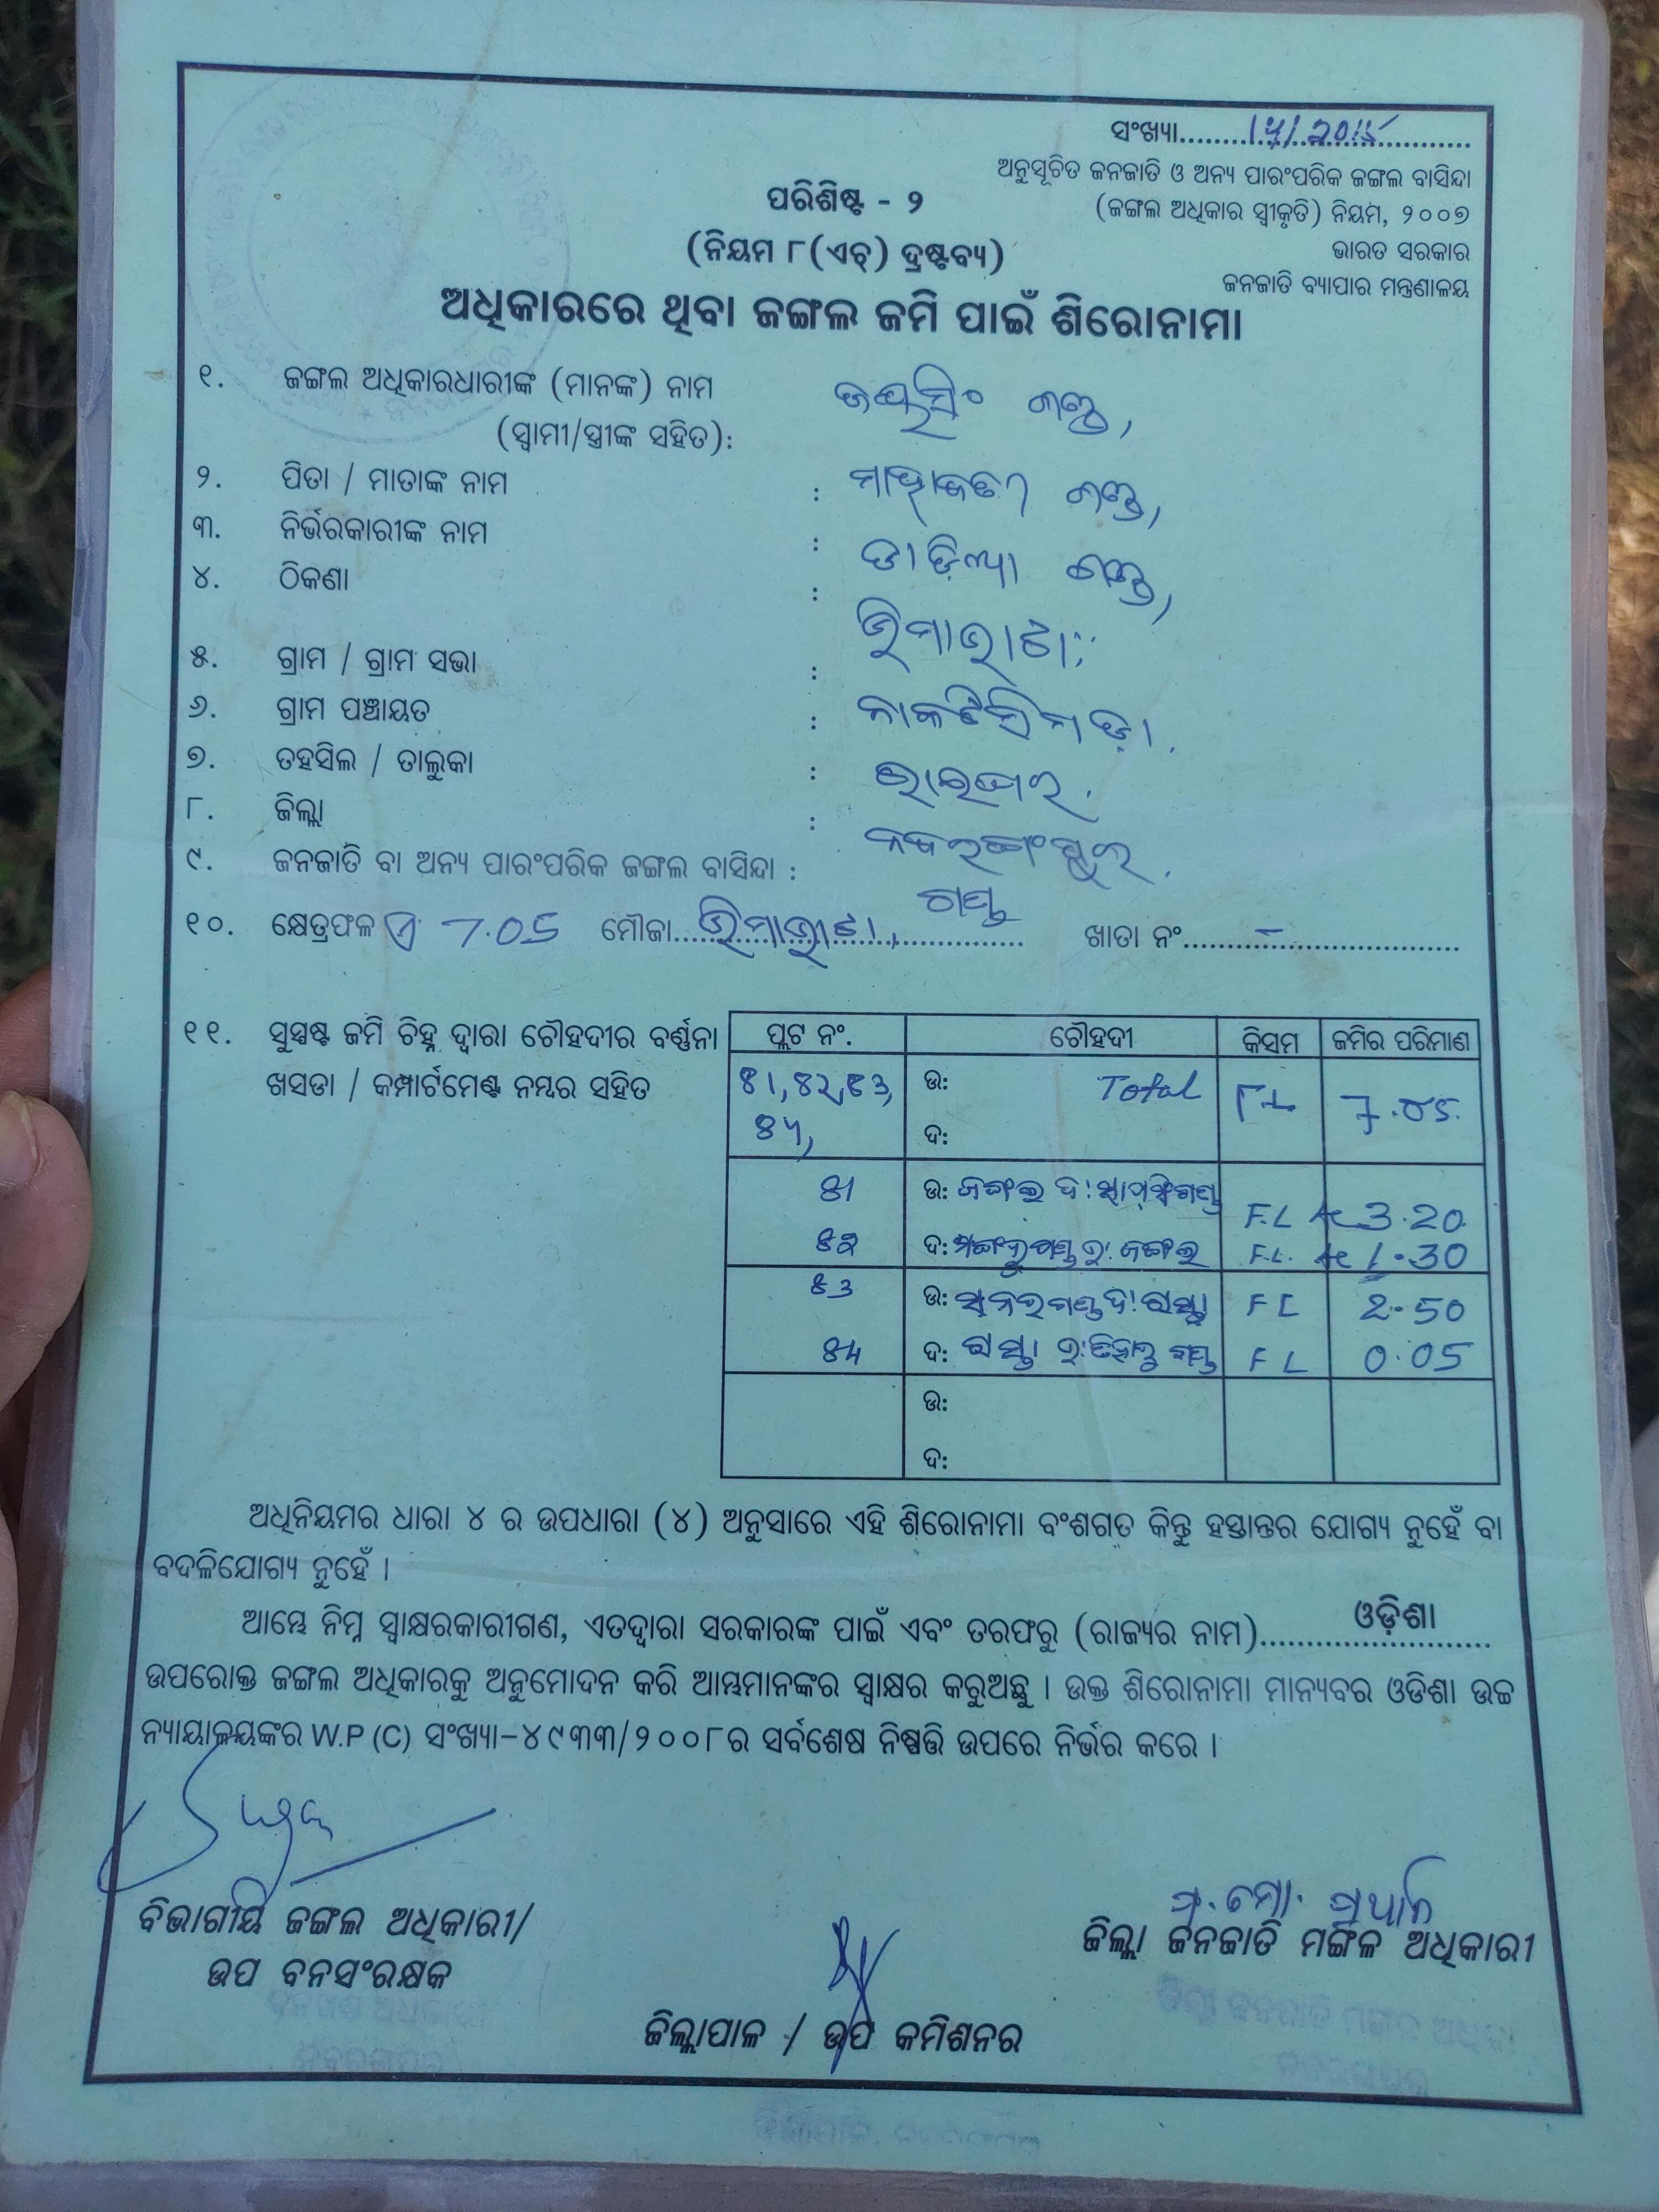 ସଂଖ୍ୟା
ଅନୁସୂଚିତ ଜନଜାତି ଓ ଅନ୍ୟ ପାରଂପରିକ ଜଙ୍ଗଲ ବାସିନ୍ଦା
(ଜଙ୍ଗଲ ଅଧିକାର ସ୍ୱୀକୃତି) ନିୟମ, ୨୦୦୭
ଭାରତ ସରକାର
ଜନଜାତି ବ୍ୟାପାର ମନ୍ତ୍ରଣାଳୟ
ପରିଶିଷ୍ଟ - ୨
(ନିୟମ ୮(ଏଚ୍) ଦ୍ରଷ୍ଟବ୍ୟ)
ଅଧିକାରରେ ଥିବା ଜଙ୍ଗଲ ଜମି ପାଇଁ ଶିରୋନାମା
୧. ଜଙ୍ଗଲ ଅଧିକାରଧାରୀଙ୍କ (ମାନଙ୍କ) ନାମ
(ସ୍ୱାମୀ/ସ୍ତ୍ରୀଙ୍କ ସହିତ): ଜୟସିଂ ଗଣ୍ଡ,
୨. ପିତା / ମାତାଙ୍କ ନାମ : ଗଣ୍ଡ,
୩. ନିର୍ଭରକାରୀଙ୍କ ନାମ : ଗଣ୍ଡ,
୪. ଠିକଣା :
୫. ଗ୍ରାମ / ଗ୍ରାମ ସଭା :
୬. ଗ୍ରାମ ପଞ୍ଚାୟତ :
୭. ତହସିଲ / ତାଲୁକା : ରାଇଘର.
୮. ଜିଲ୍ଲା : ନବରଙ୍ଗପୁର.
୯. ଜନଜାତି ବା ଅନ୍ୟ ପାରଂପରିକ ଜଙ୍ଗଲ ବାସିନ୍ଦା : ଗଣ୍ଡ
୧୦. କ୍ଷେତ୍ରଫଳ ଏ 7.05 ମୌଜା ଖାତା ନଂ -
୧୧. ସୁସ୍ପଷ୍ଟ ଜମି ଚିହ୍ନ ଦ୍ୱାରା ଚୌହଦୀର ବର୍ଣ୍ଣନା
ଖସଡା / କମ୍ପାର୍ଟମେଣ୍ଟ ନମ୍ବର ସହିତ
ପ୍ଲଟ ନଂ. ଚୌହଦୀ କିସମ ଜମିର ପରିମାଣ
81, 82, 83, ଉ: Total FL 7.05
84, ଦ:
81 ଉ: ଜଙ୍ଗଲ ଦ: F.L Ac 3.20
82 ଦ: ଜଙ୍ଗଲ F.L. Ac 1.30
83 ଉ: ରାସ୍ତା FL 2.50
84 ଦ: ରାସ୍ତା ଗଣ୍ଡ FL 0.05
ଉ:
ଦ:
ଅଧିନିୟମର ଧାରା ୪ ର ଉପଧାରା (୪) ଅନୁସାରେ ଏହି ଶିରୋନାମା ବଂଶଗତ କିନ୍ତୁ ହସ୍ତାନ୍ତର ଯୋଗ୍ୟ ନୁହେଁ ବା
ବଦଳିଯୋଗ୍ୟ ନୁହେଁ ।
ଆମ୍ଭେ ନିମ୍ନ ସ୍ୱାକ୍ଷରକାରୀଗଣ, ଏତଦ୍ୱାରା ସରକାରଙ୍କ ପାଇଁ ଏବଂ ତରଫରୁ (ରାଜ୍ୟର ନାମ) ଓଡ଼ିଶା
ଉପରୋକ୍ତ ଜଙ୍ଗଲ ଅଧିକାରକୁ ଅନୁମୋଦନ କରି ଆମ୍ଭମାନଙ୍କର ସ୍ୱାକ୍ଷର କରୁଅଛୁ । ଉକ୍ତ ଶିରୋନାମା ମାନ୍ୟବର ଓଡିଶା ଉଚ୍ଚ
ନ୍ୟାୟାଳୟଙ୍କର W.P (C) ସଂଖ୍ୟା-୪୯୩୩/୨୦୦୮ର ସର୍ବଶେଷ ନିଷ୍ପତ୍ତି ଉପରେ ନିର୍ଭର କରେ ।
ବିଭାଗୀୟ ଜଙ୍ଗଲ ଅଧିକାରୀ/
ଉପ ବନସଂରକ୍ଷକ
ଜିଲ୍ଲା ଜନଜାତି ମଙ୍ଗଳ ଅଧିକାରୀ
ଜିଲ୍ଲାପାଳ / ଉପ କମିଶନର